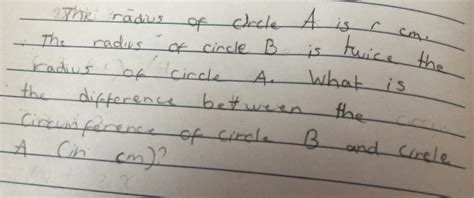 The radius of circle A is r cm.
The radius of circle B is twice the
radius of circle A. What is
the difference between the
circumference of circle B and circle
A (in cm)?